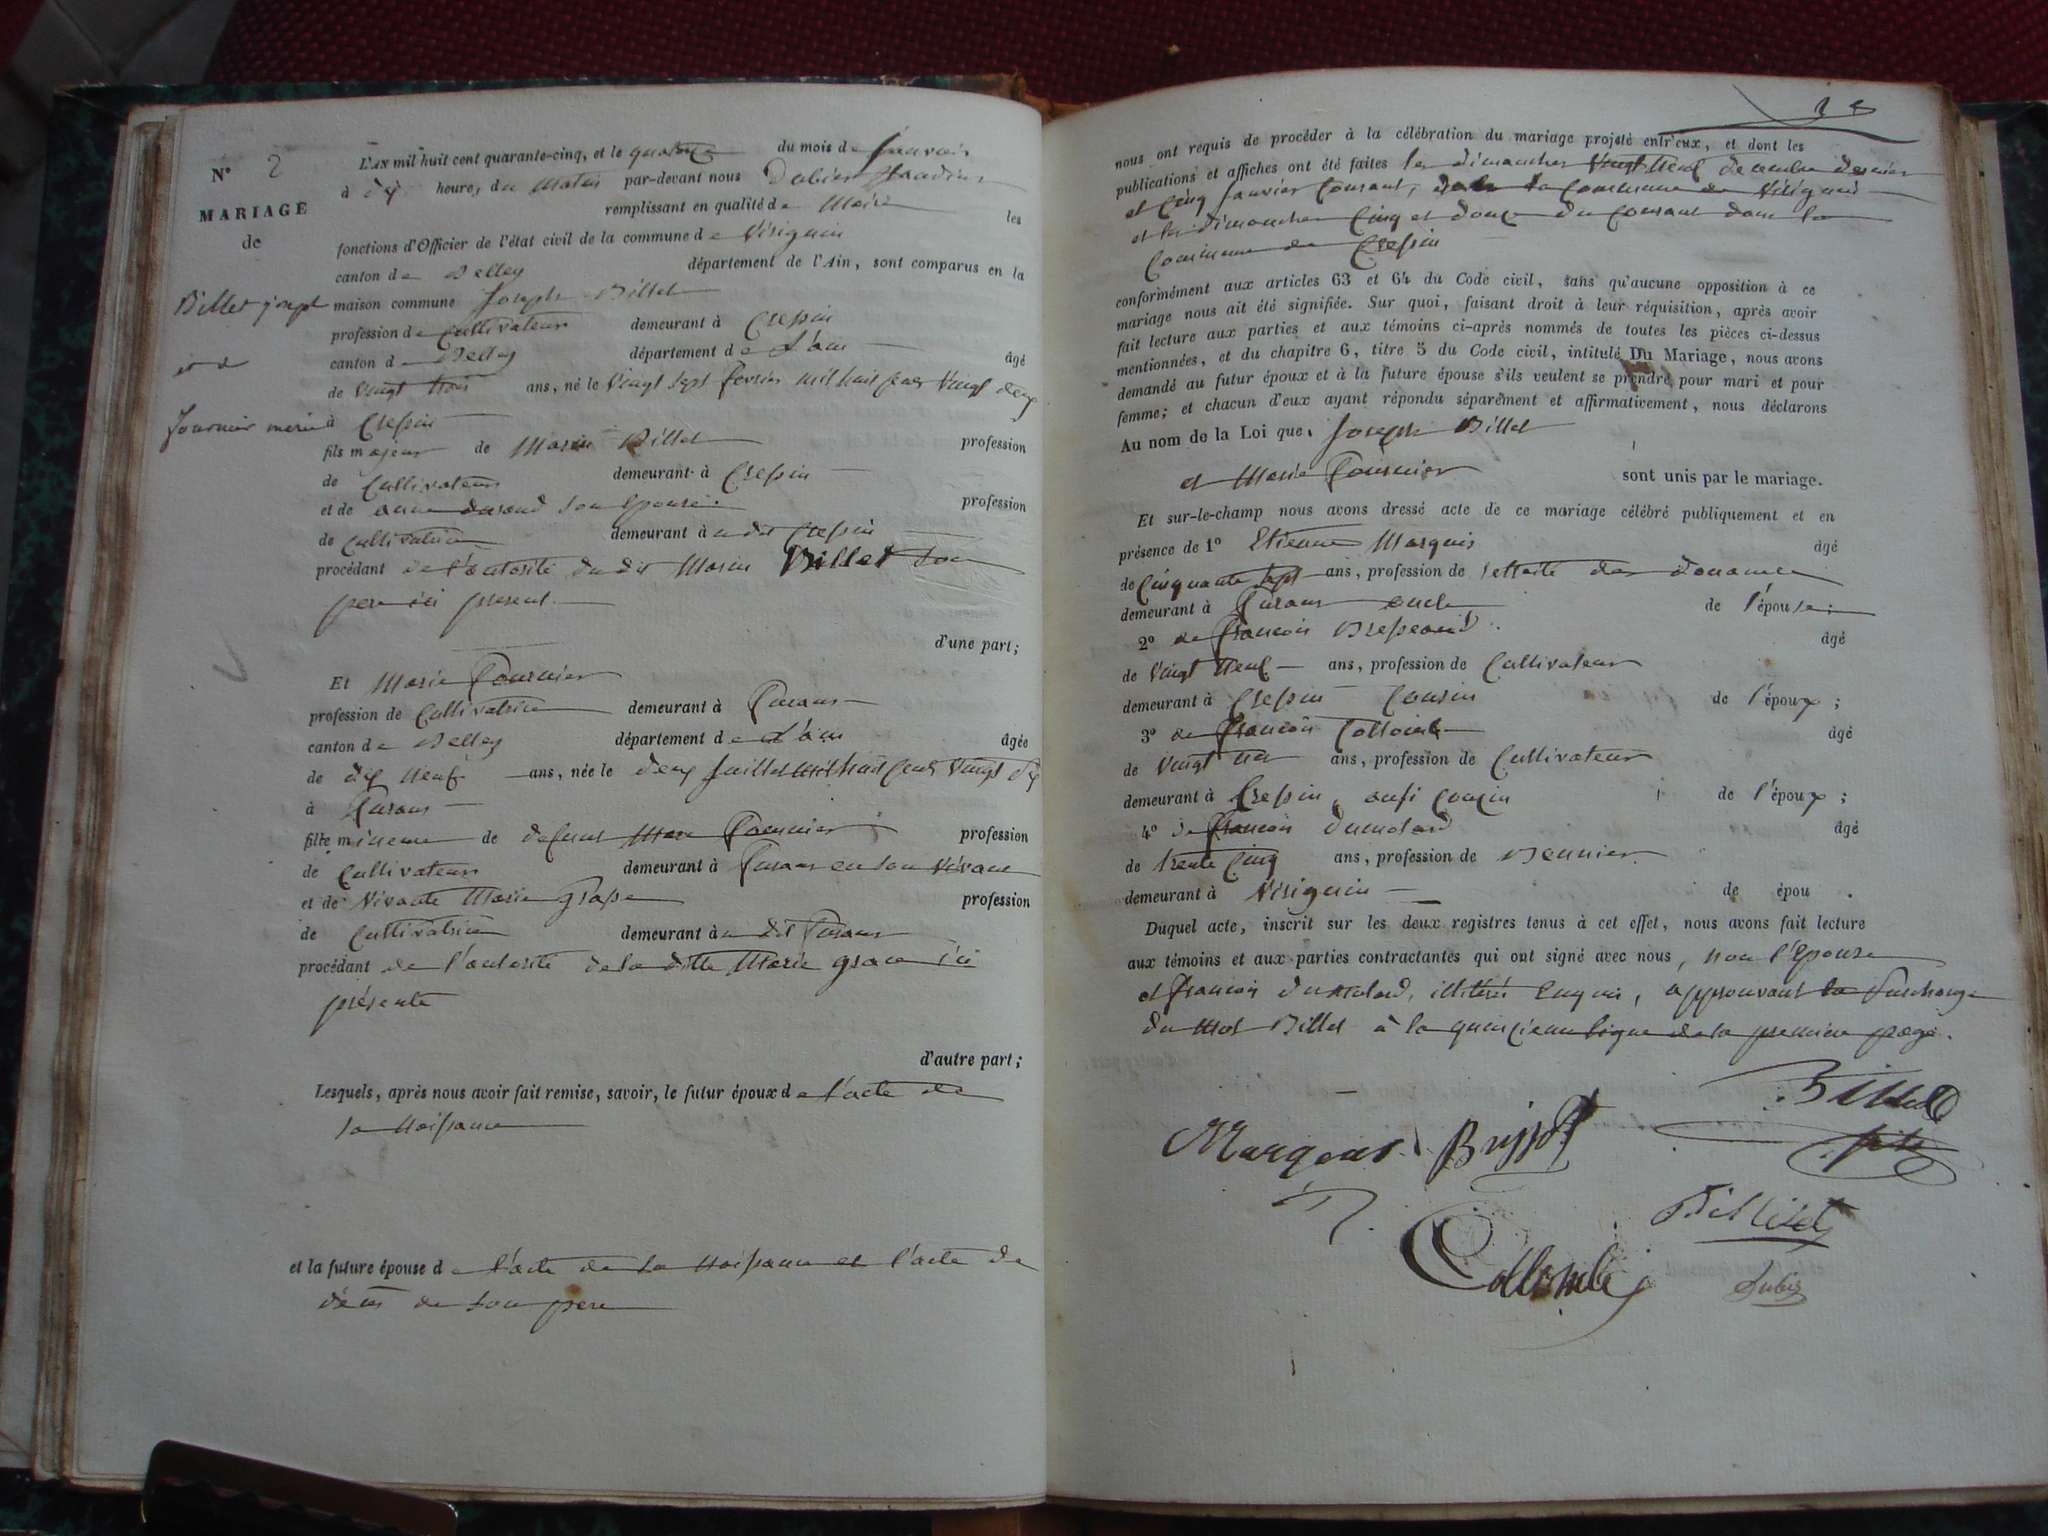 N° 2
MARIAGE
de
Billet joseph
et de
fournier marie
L'AN mil huit cent quarante-cinq, et le quatorze du mois de janvier
à dix heures du matin par-devant nous
remplissant en qualité de Maire les
fonctions d'Officier de l'état civil de la commune de Virignin
canton de Belley département de l'Ain, sont comparus en la
maison commune Joseph Billet
profession de Cultivateur demeurant à Crepin
canton de Belley département de L'ain âgé
de vingt trois ans, né le vingt sept fevrier mil huit cent vingt deux
à Crepin
fils majeur de Marin Billet profession
de Cultivateur demeurant à Crepin
et de anne durand son Epouse profession
de Cultivatrice demeurant à u dit Crepin
procédant de l'autorité du dit Marin Billet son
pere ici present
d'une part;
Et Marie Fournier
profession de Cultivatrice demeurant à Furans
canton de Belley département de L'ain âgée
de dix neuf ans, née le deux juillet mil huit cent vingt
à Furans
fille mineure de defunt Fournier profession
de Cultivateur demeurant à Furans en son vivant
et de vivante Marie profession
de Cultivatrice demeurant à u dit Furans
procédant de l'autorité de la ditte Marie ici
présente
d'autre part;
Lesquels, après nous avoir fait remise, savoir, le futur époux de l'acte de
sa naissance
et la future épouse de l'acte de sa naissance et l'acte de
décès de son pere
nous ont requis de procéder à la célébration du mariage projeté entr'eux, et dont les
publications et affiches ont été faites les dimanches vingt neuf decembre dernier
et cinq janvier courant, dans la commune de Virignin
et les dimanches cinq et douze du courant dans la
commune de Crepin
conformément aux articles 63 et 64 du Code civil, sans qu'aucune opposition à ce
mariage nous ait été signifiée. Sur quoi, faisant droit à leur réquisition, après avoir
fait lecture aux parties et aux témoins ci-après nommés de toutes les pièces ci-dessus
mentionnées, et du chapitre 6, titre 5 du Code civil, intitulé Du Mariage, nous avons
demandé au futur époux et à la future épouse s'ils veulent se prendre pour mari et pour
femme; et chacun d'eux ayant répondu séparément et affirmativement, nous déclarons
Au nom de la Loi que, Joseph Billet
et Marie Fournier sont unis par le mariage.
Et sur-le-champ nous avons dressé acte de ce mariage célébré publiquement et en
présence de 1° Etienne Marquis âgé
de cinquante sept ans, profession de retraité des douanes
demeurant à Furans oncle de l'épouse;
2° de françois âgé
de vingt neuf ans, profession de Cultivateur
demeurant à Crepin Cousin de l'époux;
3° de françois Collomb âgé
de vingt ans, profession de Cultivateur
demeurant à Crepin, ausi cousin de l'époux;
4° de françois dumolard âgé
de trente cinq ans, profession de
demeurant à Virignin de épou .
Duquel acte, inscrit sur les deux registres tenus à cet effet, nous avons fait lecture
aux témoins et aux parties contractantes qui ont signé avec nous, non l'Epouse
et françois dumolard, illiterés enquis, approuvant la surcharge
du mot Billet à la quinzieme ligne de la premiere page.
Billet
fils
Collomb